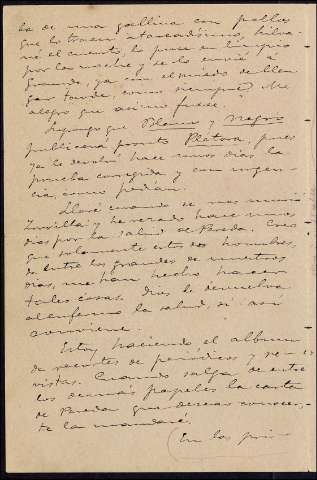 ta de una gallina con pollos
que lo tienen atareadísimo, hilva-
né el cuento, lo puse en limpio
por la noche y se lo envié á
Grande, ya con el miedo de lle-
gar tarde, como siempre. Me
alegro que asímo fuese.
Supongo que Blanco y Negro
publicará pronto Platera, pues
ya le devolví hace unos días la
prueba corregida y con urgen-
cia, como pedían.
Lloré cuando se nos murió
Zorrilla y he rezado hace unos
días por la salud de Pereda. Creo
que solamente estos dos hombres,
de entre los grandes de nuestros
días, me han hecho hacer
tales cosas. Dios le devuelva
al enfermo la salud, si así
conviene.
Estoy haciendo el álbum
de recortes de periódicos y re-
vistas. Cuando salga de entre
los demás papeles la carta
de Pereda que deseas conocer,
te la mandaré.
En los pri-